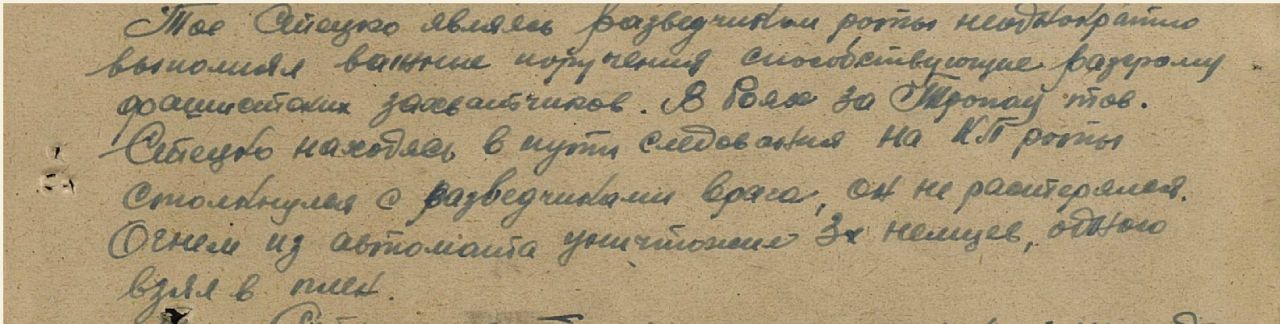 Тов Стецко являясь разведчиком роты неоднократно
выполнял важные поручения способствующие разгрому
фашистских захватчиков. В боях за Тропау тов.
Стецко находясь в пути следования на КП роты
столкнулся с разведчиками врага, он не растерялся.
Огнем из автомата уничтожил 3х немцев, одного
взял в плен.